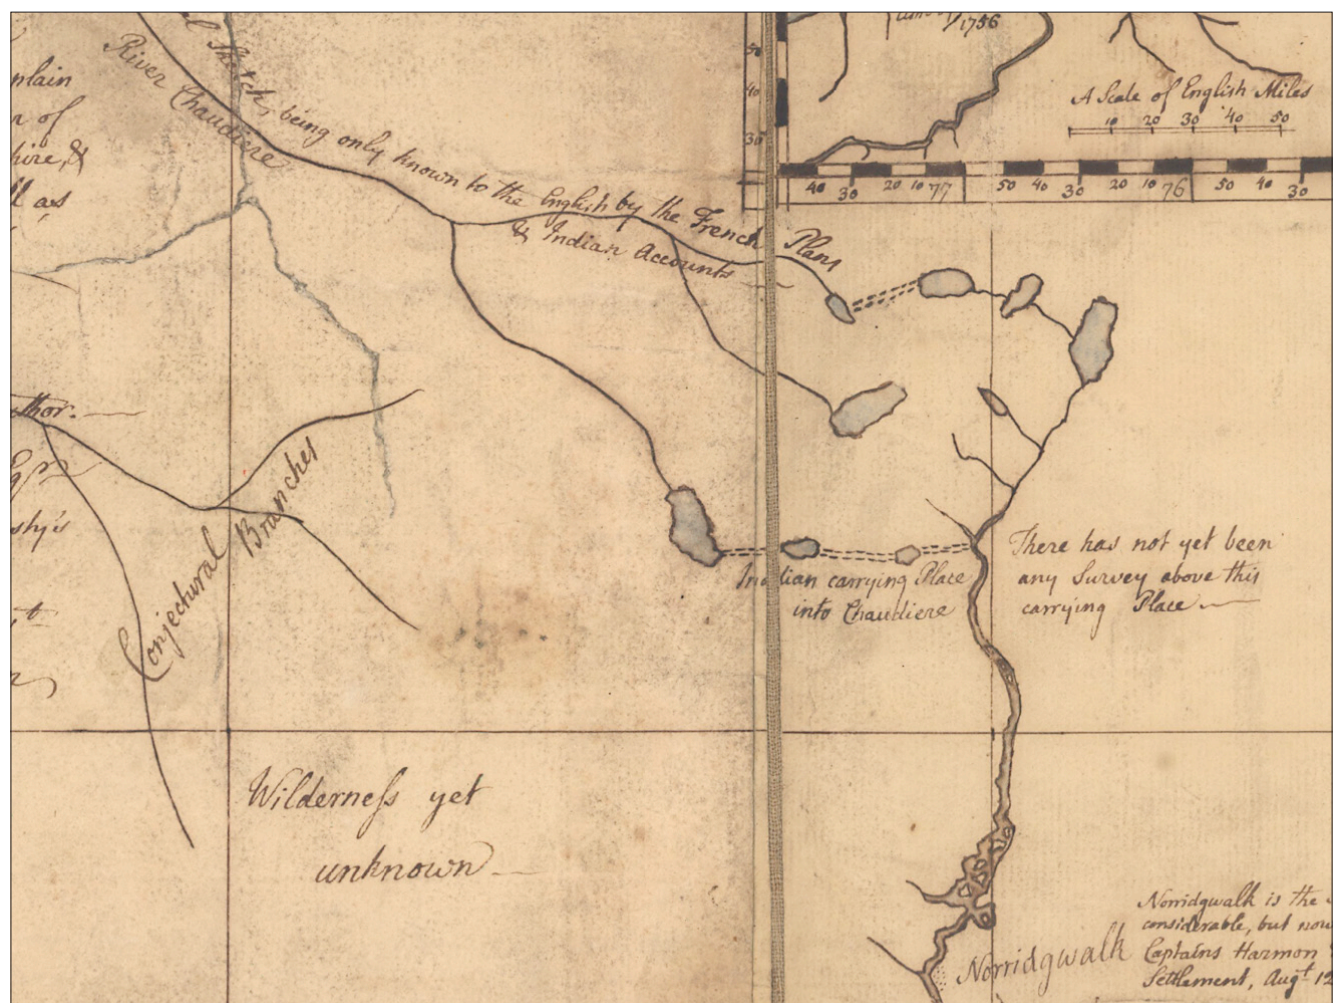 plain
of
hire, &
l as
River Chaudiere
Sketch, being only known to the English by the French Plans
& Indian Accounts
1756
A Scale of English Miles
10 20 30 40 50
50
40
30
40 30 20 10 77 50 40 30 20 10 76 50 40 30
thor.
Conjectural Branches
Indian carrying Place
into Chaudiere
There has not yet been
any Survey above this
carrying Place
Wilderneſs yet
unknown
Norridgwalk
Norridgwalk is the
considerable, but now
Captains Harmon
Settlement, Augt. 12